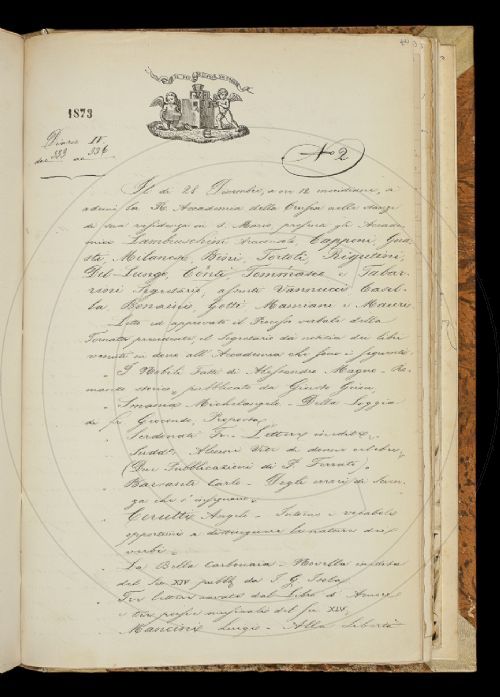 1873
Diario IV
N° 2
Il dì 28 Dicembre, a ore 12 meridiane, si
adunò la R. Accademia della Crusca nelle stanze
di sua residenza in S. Marco, presenti gli Accade-
mici Lambruschini Arciconsolo, Capponi, Gua-
sti, Milanesi, Bini, Tortoli, Rigutini,
Del-Lungo, Conti, Tommaseo e Tabar-
rini Segretario; assenti Vannucci, Casel-
la, Bonaini, Gotti, Mamiani e Mauri.
Letto ed approvato il Processo verbale della
Tornata precedente, il Segretario dà notizia dei libri
venuti in dono all'Accademia che sono i seguenti
I Nobili Fatti di Alessandro Magno - Ro-
manzo storico, pubblicato da Giusto Grion
Smania Michelangelo - Della Loggia
di Fra Giocondo, Proposta
Serdonati Fr. - Lettere inedite,
Suddo. Alcune Vite di donne celebri
(Due Pubblicazioni di P. Ferrato)
Carlo - Degli errori di
che s'insegnano,
Cerutti Angelo -
opportuni a distinguere la natura dei
verbi.
La Bella Carbonara - Novella inedita
del Sec. XIV pubbl. da I. G. Isola,
Tre lettere cavate dal Libro d'Amore
e tre poesie del Sec. XIV.
Mancini Luigi - Alla Libertà